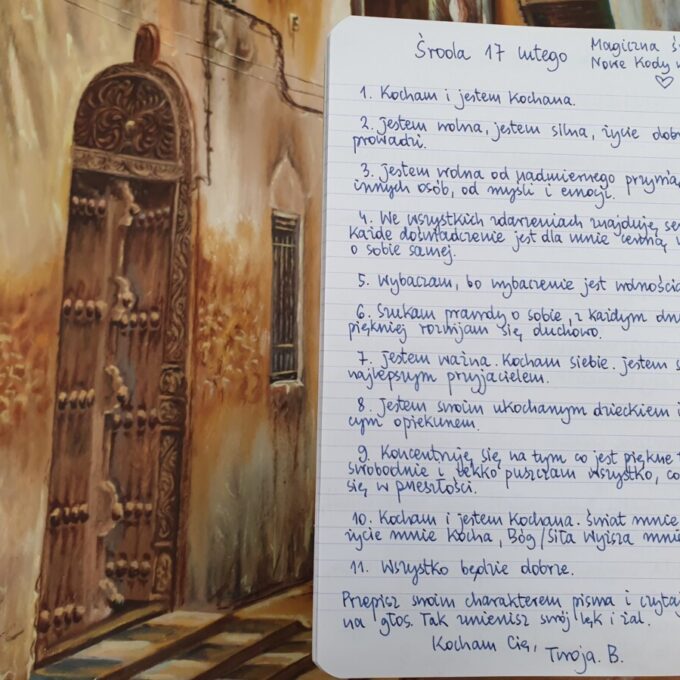 Środa 17 lutego
Magiczna
Nowe Kody
1. Kocham i jestem kochana.
2. jestem wolna, jestem silna, życie
prowadzi.
3. jestem wolna od nadmiernego
innych osób, od myśli i emocji.
4. We wszystkich zdarzeniach znajduję
każde doświadczenie jest dla mnie cenną
o sobie samej.
5. Wybaczam, bo wybaczenie jest
6. Szukam prawdy o sobie, z każdym
piękniej rozwijam się duchowo.
7. jestem ważna. Kocham siebie. jestem
najlepszym przyjacielem.
8. jestem swoim ukochanym dzieckiem i
cym opiekunem.
9. Koncentruję się na tym co jest piękne
swobodnie i lekko puszczam wszystko, co
się w przeszłości.
10. Kocham i jestem kochana. świat mnie
życie mnie kocha, Bóg/Siła Wyższa
11. Wszystko będzie dobrze.
Przepisz swoim charakterem pisma i
na głos. Tak zmienisz swój lęk i żal.
Kocham Cię,
Twoja. B.